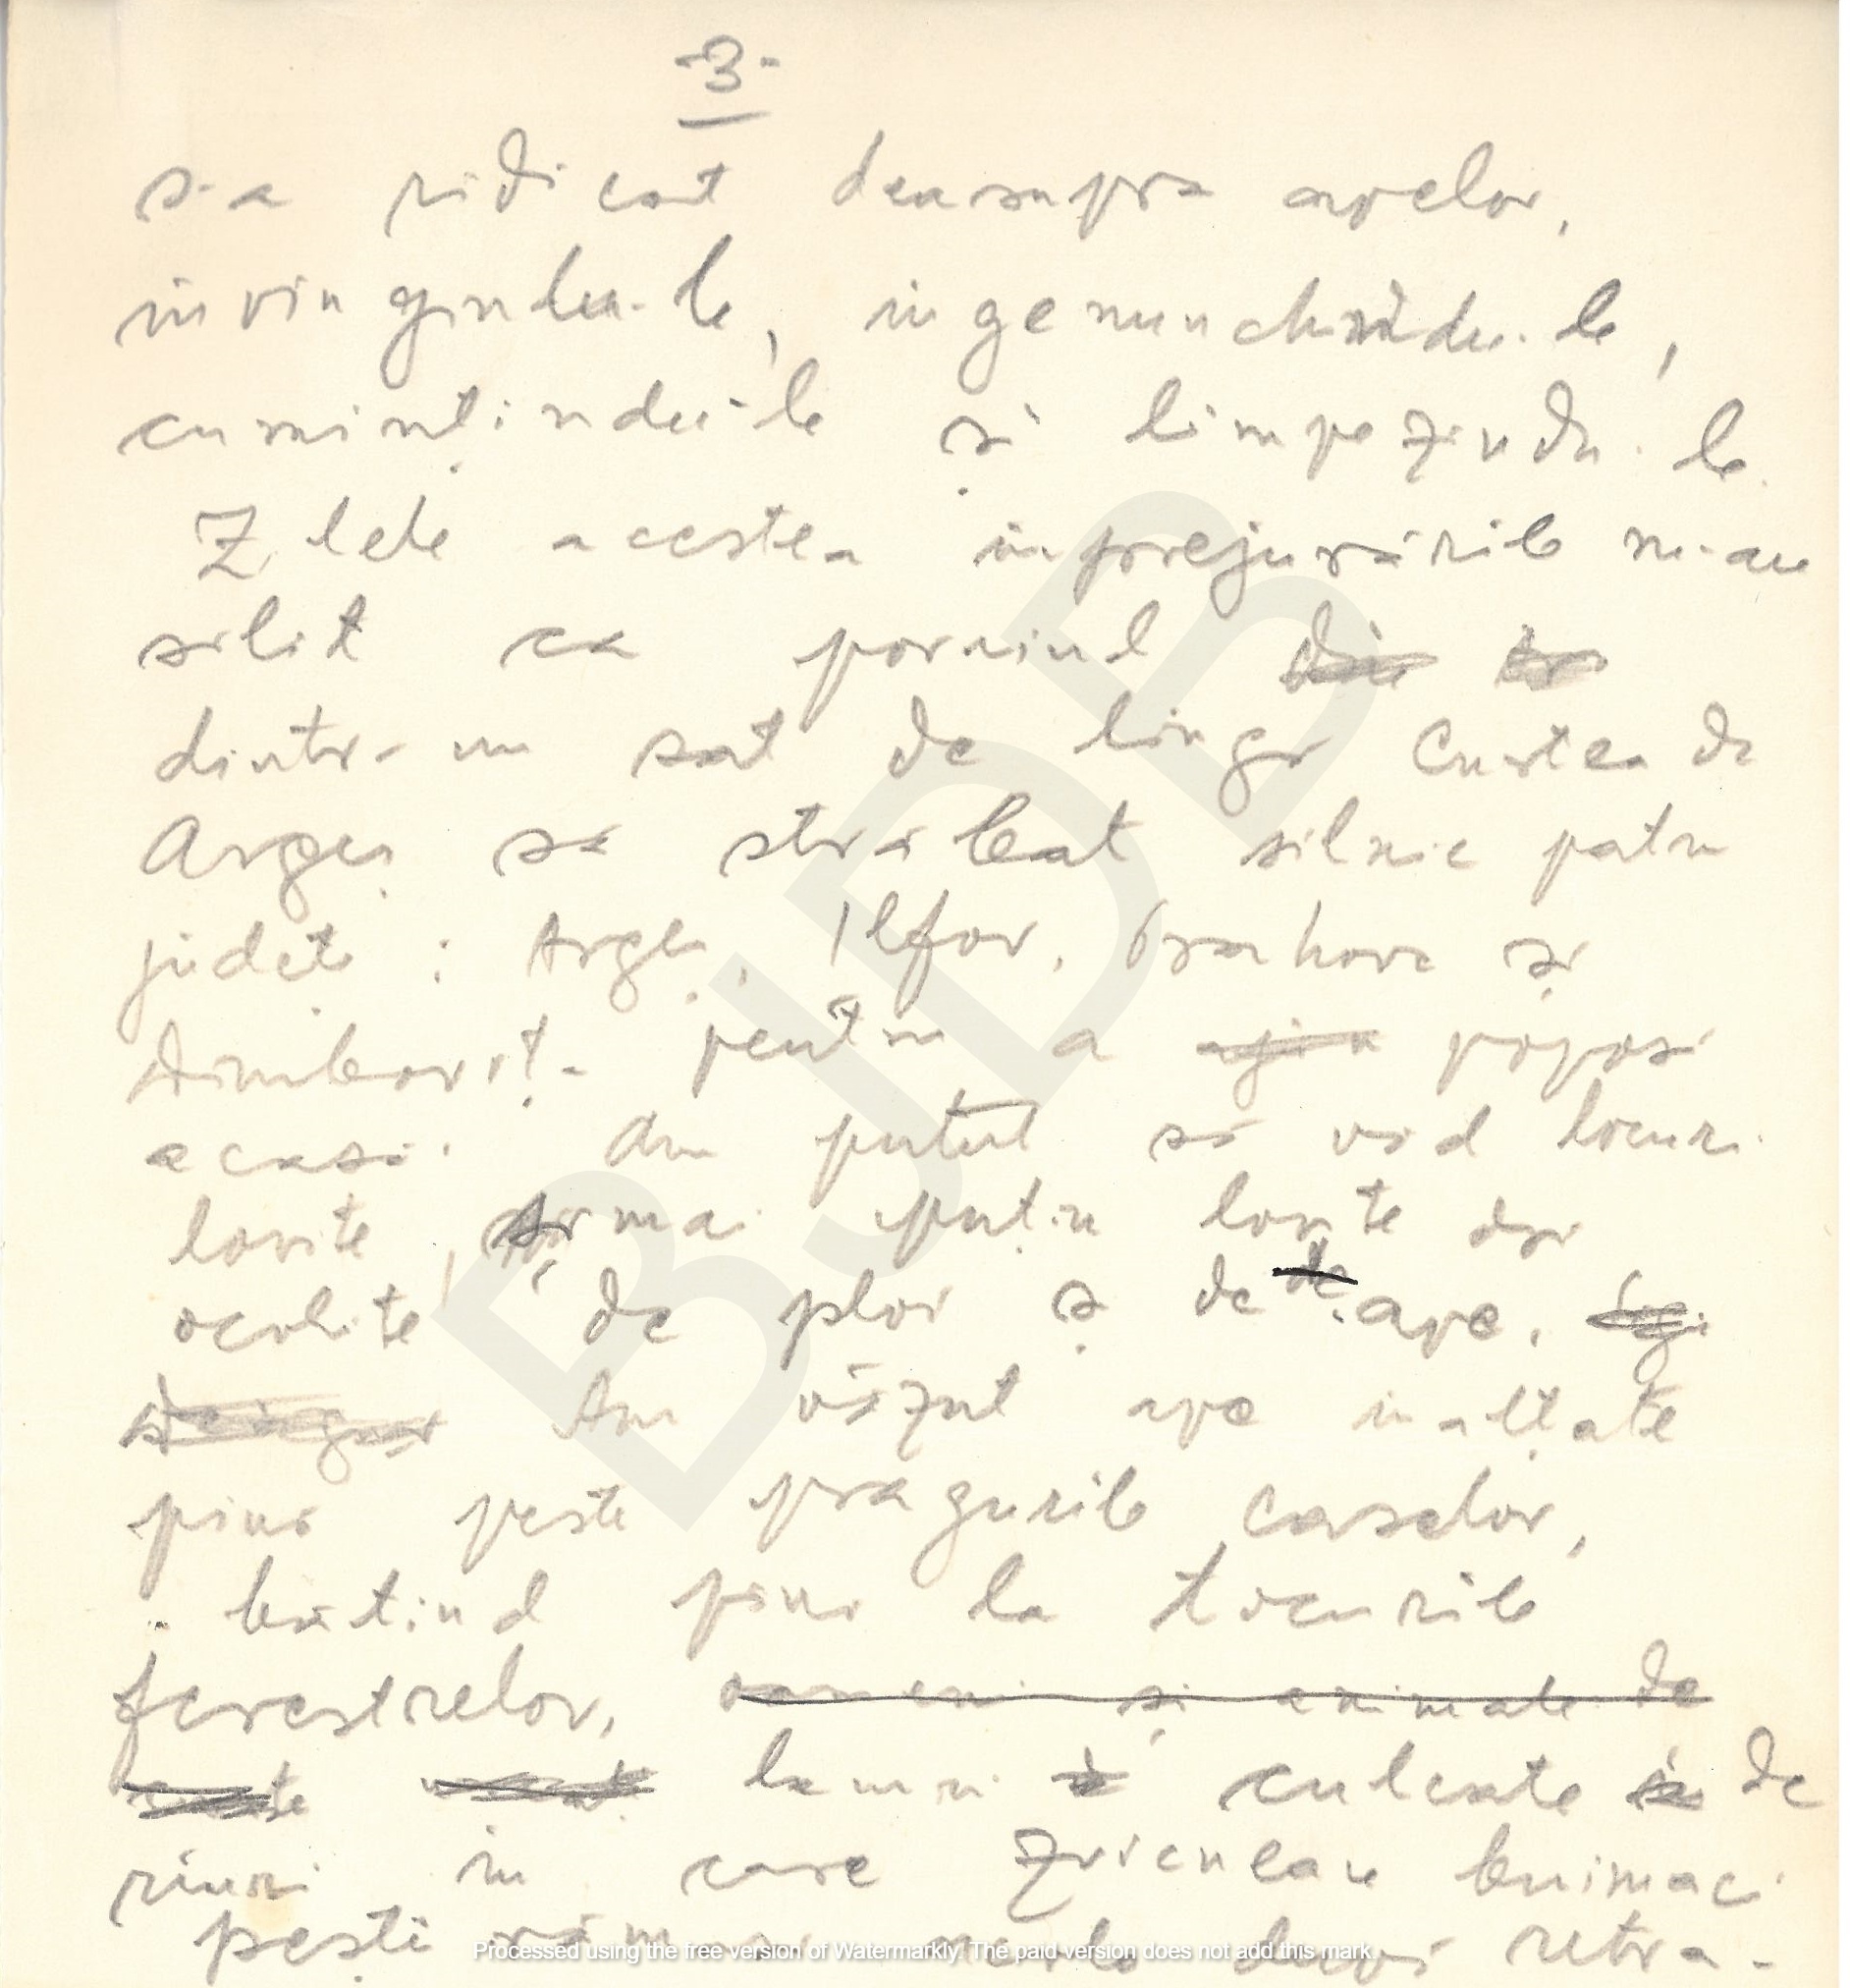 -3-
s-a ridicat deasupra apelor,
învingîndu-le, îngenunchiîndu-le,
cumințindu-le și limpezindu-le.
Zilele acestea împrejurările m-au
silit ca pornind din
dintr-un sat de lîngă Curtea de
Argeș să străbat silnic patru
județe : Argeș, Ilfov, Prahova și
Dîmbovița pentru a poposi
acasă. Am putut să văd locuri
lovite, mai puțin lovite ori
ocolite de ploi și de de ape.
Am văzut ape înălțate
pînă peste pragurile caselor,
bătînd pînă la tocurile
ferestrelor, oameni și animale de
lanuri culcate de
rîuri în care zvîcneau buimaci
pești rămași după retra-
BJDB
Processed using the free version of Watermarkly. The paid version does not add this mark.